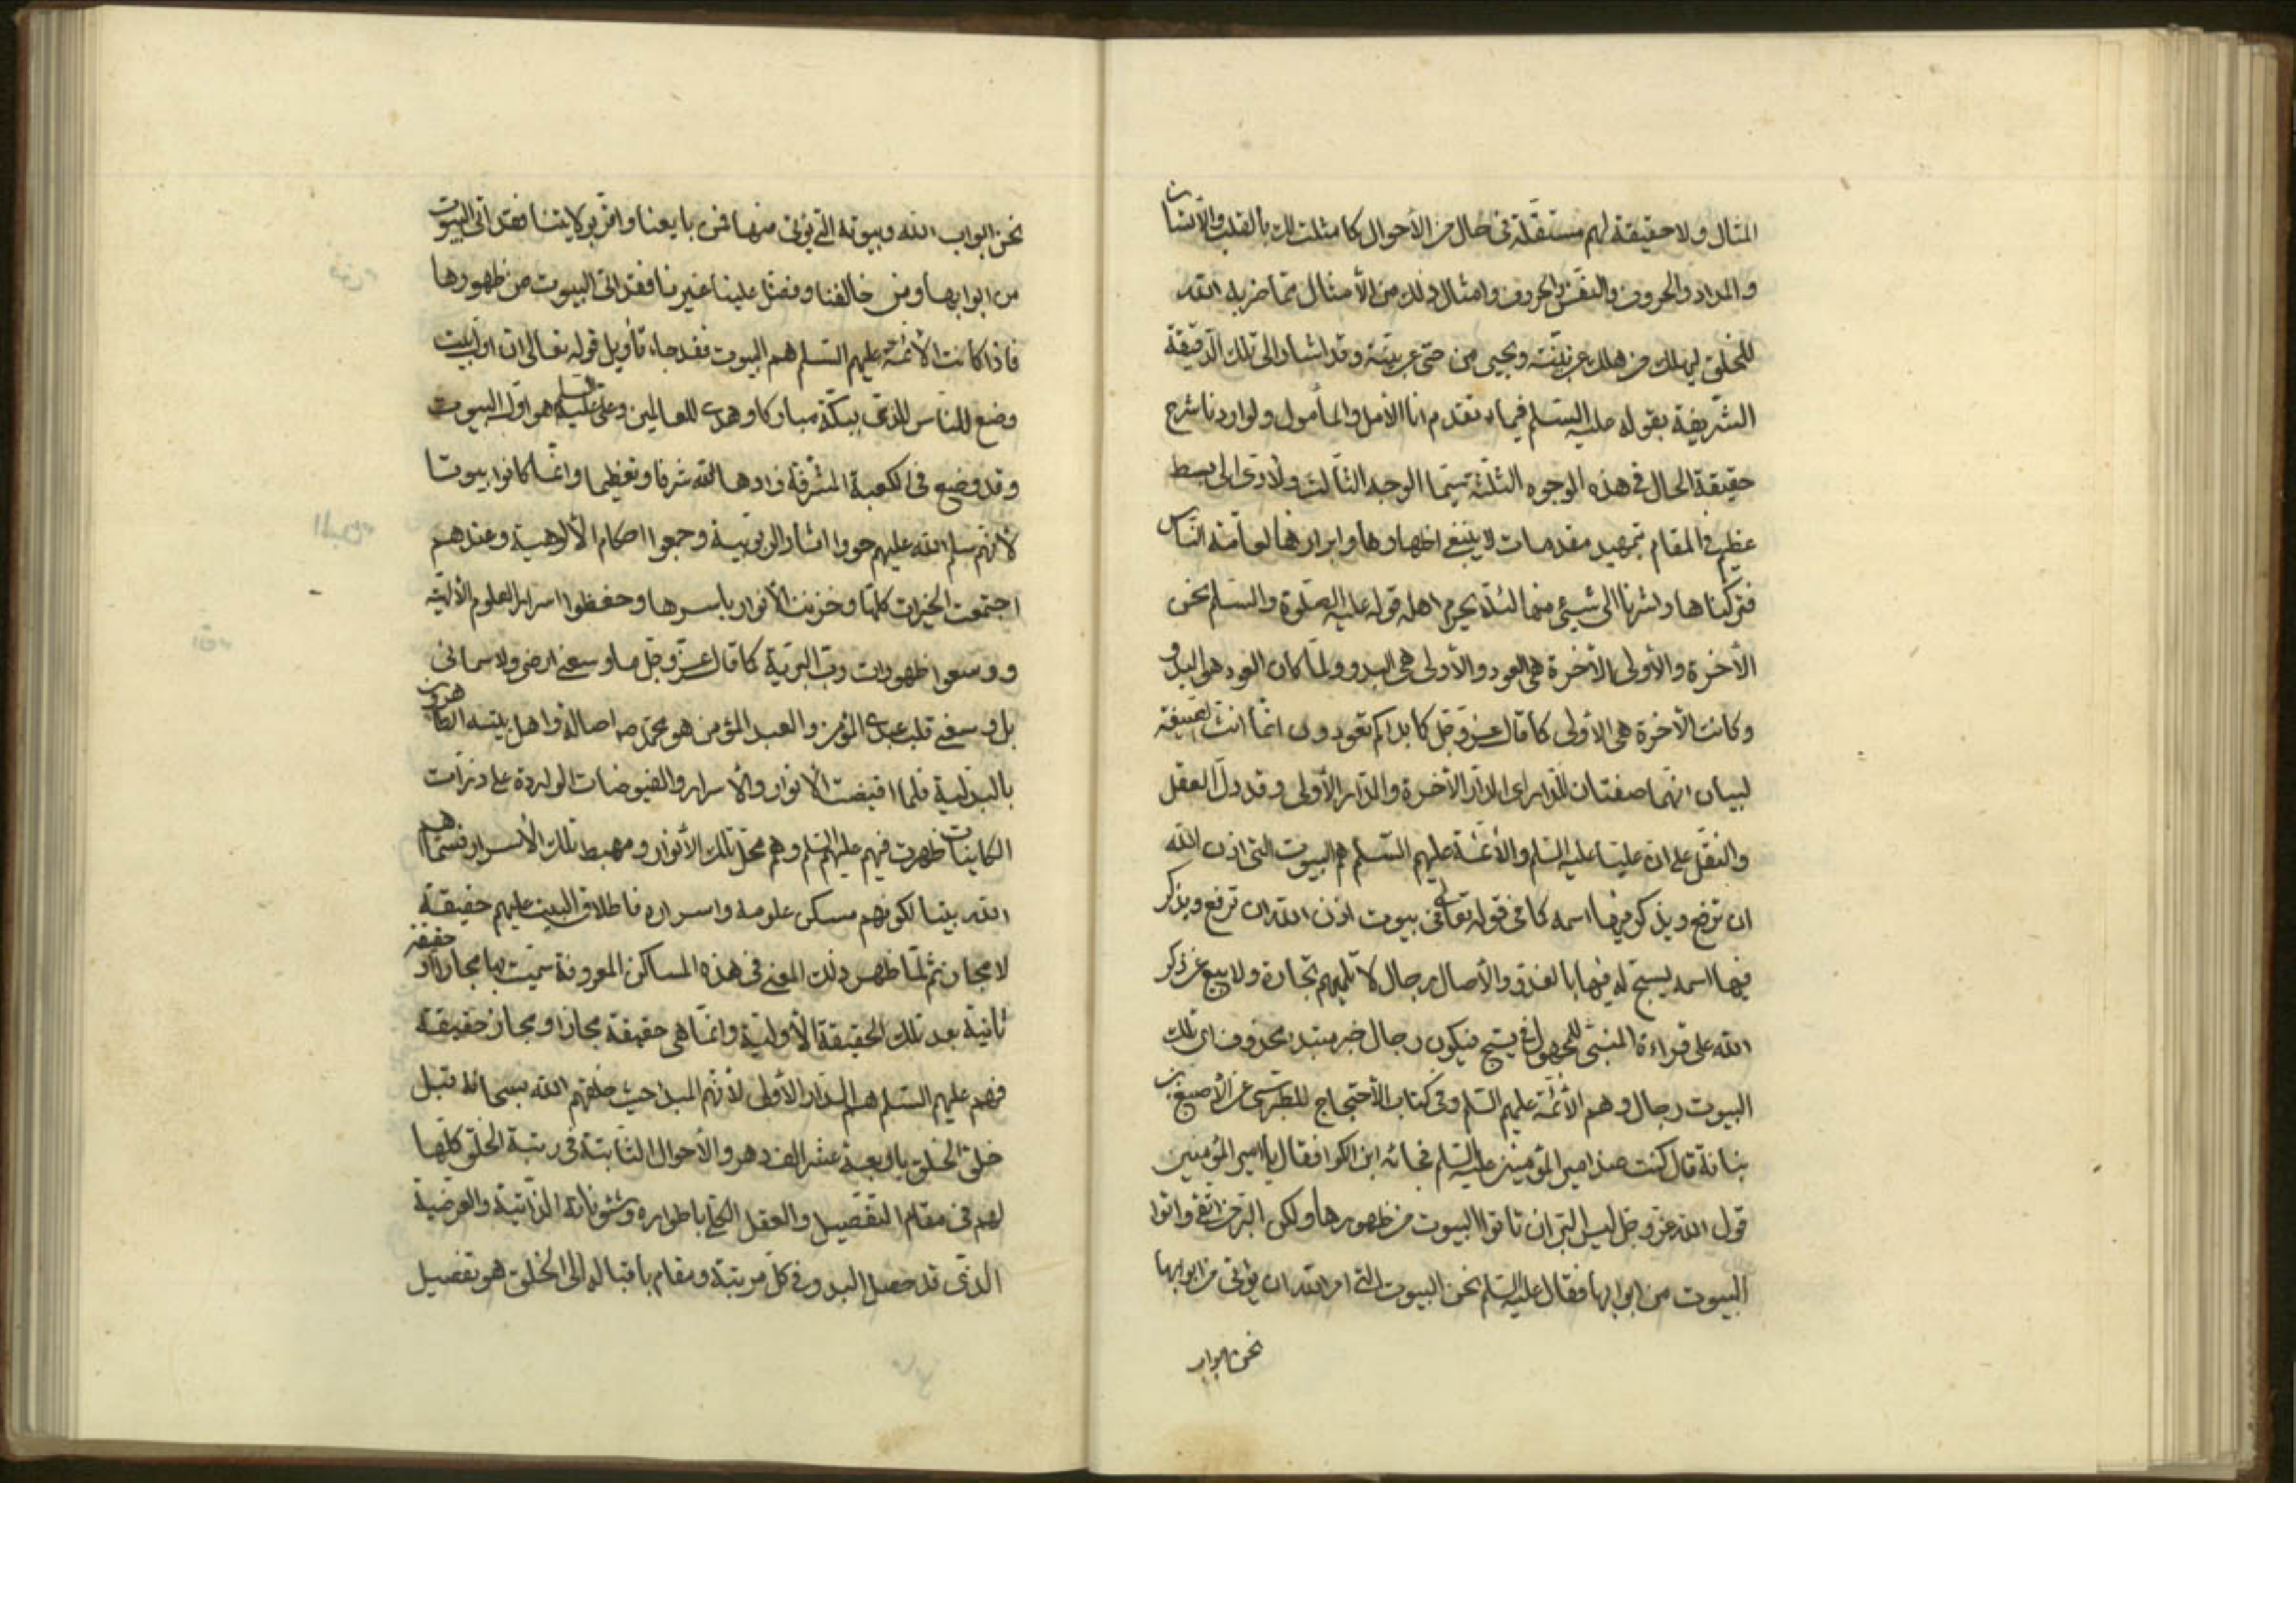 المثال ولا حقيقة لهم مستقلة في حال من الأحوال كما مثلت لك بالقلب والانسان
والمداد والحروف والنفس والحروف وامثال ذلك من الأمثال مما ضربه الله
للخلق ليهلك من هلك عن بينة ويحيى من حي عن بينة وقد اشار الى تلك الدقيقة
الشريفة بقوله عليه السلم فيما تقدم انا الأمل والمأمول ولو اردنا شرح
حقيقة الحال في هذه الوجوه الثلثة سيما الوجه الثالث ولادى الى بسط
عظيم في المقام بتمهيد مقدمات لا ينبغي اظهارها وابرازها لعامة الناس
فتركناها واشرنا الى شيء منها لئلا يحرم اهله قوله عليه الصلوة والسلم نحن
الأخرة والأولى الأخرة هي العود والأولى هي البدو ولما كان العود هو البدو
وكانت الأخرة هي الأولى كما قال عز وجل كما بدأكم تعودون انما انت الصيغة
لبيان انهما صفتان للدار اي الدار الأخرة والدار الأولى وقد دل العقل
والنقل على ان عليا عليه السلم والأئمة عليهم السلم هم البيوت التي اذن الله
ان ترفع ويذكر فيها اسمه كما في قوله تعالى في بيوت اذن الله ان ترفع ويذكر
فيها اسمه يسبح له فيها بالغدو والأصال رجال لا تلهيهم تجارة ولا بيع عن ذكر
الله على قراءة المبني للمجهول في يسبح فيكون رجال خبر مبتدء محذوف اي تلك
البيوت رجال وهم الأئمة عليهم السلم وفي كتاب الأحتجاج للطبرسي عن الأصبغ بن
نباتة قال كنت عند امير المؤمنين عليه السلم فجائه ابن الكوا فقال يا امير المؤمنين
قول الله عز وجل ليس البر ان تاتوا البيوت من ظهورها ولكن البر من اتقى واتوا
البيوت من ابوابها فقال عليه السلم نحن البيوت التي امر الله ان يؤتى من ابوابها
نحن ابواب
نحن ابواب الله وبيوته التي يؤتى منها فمن بايعنا واقر بولايتنا فقد اتى البيوت
من ابوابها ومن خالفنا وفضل علينا غيرنا فقد اتى البيوت من ظهورها
فاذا كانت الأئمة عليهم السلم هم البيوت فقد جاء تأويل قوله تعالى ان اول بيت
وضع للناس للذي ببكة مباركا وهدى للعالمين وعلي عليه السلم هو اول البيوت
وقد وضع في الكعبة المشرفة زادها الله شرفا وتعظيما وانما كانوا بيوتا
لأنهم سلم الله عليهم حووا اثار الربوبية وجمعوا احكام الألوهية وعندهم
اجتمعت الخيرات كلها وخزنت الأنوار باسرها وحفظوا اسرار العلوم الألهية
ووسعوا ظهورات رب البرية كما قال عز وجل ما وسعني ارضي ولا سمائي
بل وسعني قلب عبدي المؤمن والعبد المؤمن هو محمد ص اصالة واهل بيته الطاهرون
بالبدلية فلما افيضت الأنوار والأسرار والفيوضات الواردة على ذرات
الكاينات ظهرت فيهم عليهم السلم وهم محل تلك الأنوار ومهبط تلك الأسرار فسماهم
الله بيتا لكونهم مسكن علومه واسراره فاطلاق البيت عليهم حقيقة
لا مجاز ثم لما ظهر ذلك المعنى في هذه المساكن المعروفة سميت بها مجازا او حقيقة
ثانية بعد تلك الحقيقة الأولية وانما هي حقيقة مجازا ومجاز حقيقة
فهم عليهم السلم هم الدار الأولى لأنهم المبدا حيث خلقهم الله سبحانه قبل
خلق الخلق باربعة عشر الف دهر والأحوال الثابتة في رتبة الخلق كلها
لهم في مقام التفصيل والعقل الكلي باطواره وشئوناته الذاتية والعرضية
الذي قد حصل البدو في كل مرتبة ومقام باقباله الى الخلق هو تفصيل